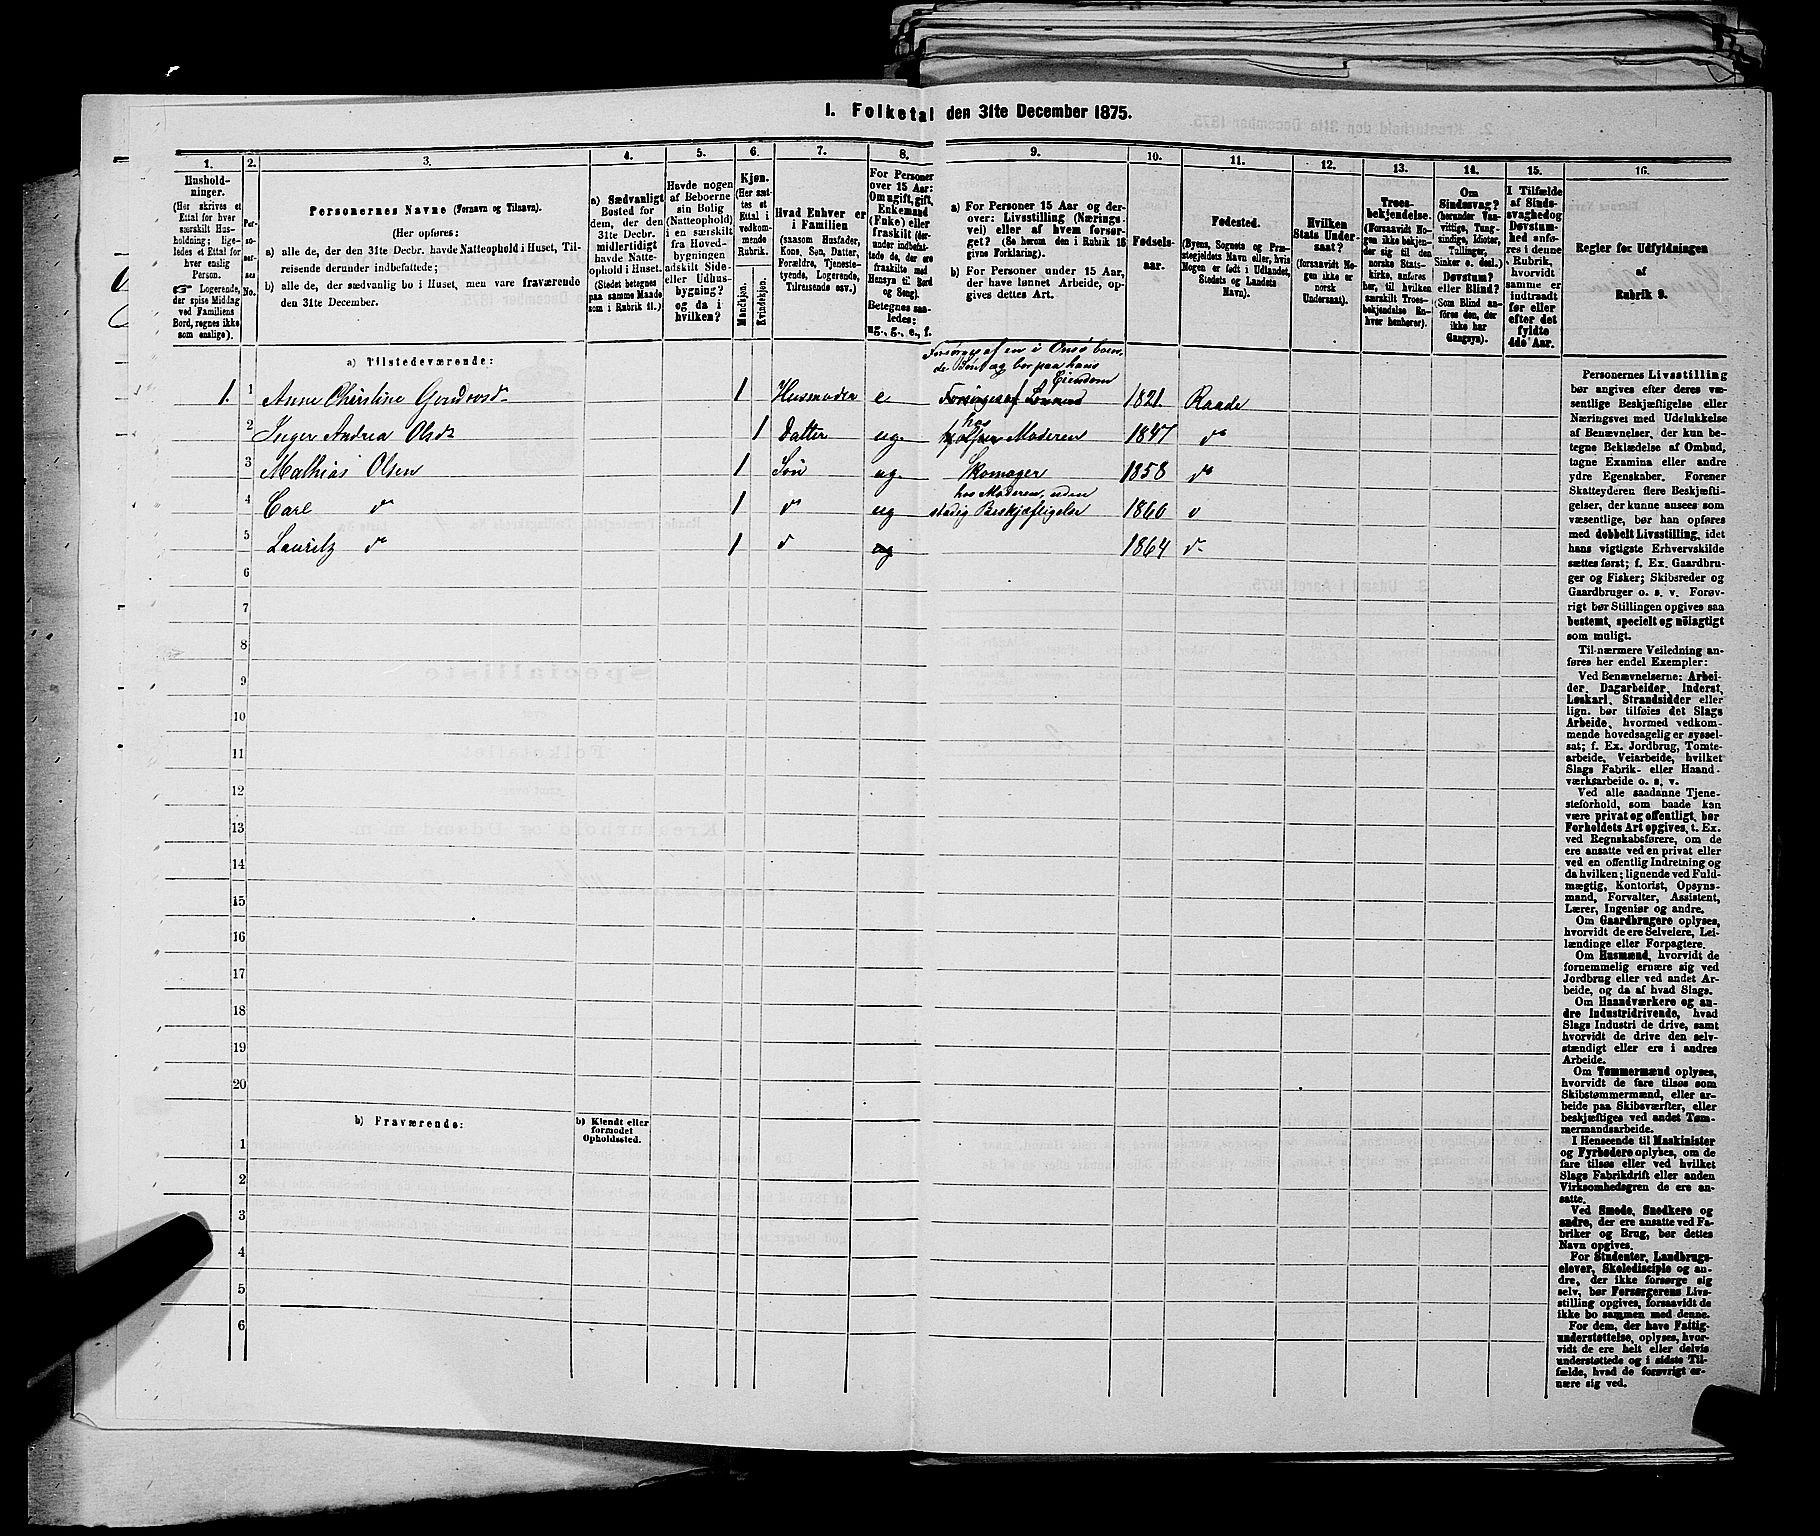 1. Folketal den 31te December 1875.
1. 2. 3. 4. 5. 6. 7. 8. 9. 10. 11. 12. 13. 14. 15. 16.
Hushold-
ninger.
(Her skrives et
Ettal for hver
særskilt Hus-
holdning; lige-
ledes et Ettal for
hver enslig
Person.
☞ Logerende,
der spise Middag
ved Familiens
Bord, regnes ikke
som enslige).
Per-
so-
ner-
nes
No.
Personernes Navne (Fornavn og Tilnavn).
(Her opføres:
a) alle de, der den 31te Decbr. havde Natteophold i Huset, Til-
reisende derunder indbefattede;
b) alle de, der sædvanlig bo i Huset, men vare fraværende
den 31te December.
a) Sædvanligt
Bosted for
dem, der den
31te Decbr.
midlertidigt
havde Natte-
ophold i Huset.
(Stedet betegnes
paa samme Maade
som i Rubrik 11.)
Havde nogen
af Beboerne
sin Bolig
(Natteophold)
i en særskilt
fra Hoved-
bygningen
adskilt Side-
eller Udhus-
bygning?
og da i
hvilken?
Kjøn.
(Her sæt-
tes et
Ettal i
vedkom-
mende
Rubrik.
Mandkjøn.
Kvindekjøn.
Hvad Enhver er
i Familien
(saasom Husfader,
Kone, Søn, Datter,
Forældre, Tjeneste-
tyende, Logerende,
Tilreisende osv.)
For Personer
over 15 Aar:
Om ugift, gift,
Enkemand
(Enke) eller
fraskilt (der-
under indbefat-
tede de, der ere
fraskilte med
Hensyn til Bord
og Seng).
Betegnes saa-
ledes:
ug., g., e., f.
a) For Personer 15 Aar og der-
over: Livsstilling (Nærings-
vei) eller af hvem forsør-
get? (Se herom den i Rubrik 16
givne Forklaring).
b) For Personer under 15 Aar,
der have lønnet Arbeide, op-
gives dettes Art.
Fødsels-
aar.
Fødested.
(Byens, Sognets og Præ-
stegjeldets Navn eller, hvis
Nogen er født i Udlandet,
Stedets og Landets
Navn).
Hvilken
Stats Under-
saat?
(forsaavidt No-
gen ikke er
norsk
Undersaat).
Troes-
bekjendelse.
(Forsaavidt No-
gen ikke bekjen-
der sig til den
norske Stats-
kirke, anføres
her, til hvilken
særskilt Troes-
bekjendelse En-
hver henhører).
Om
Sindssvag?
(herunder Van-
vittige, Tung-
sindige, Idioter,
Tullinger,
Sinker o. desl.)
Døvstum?
eller Blind?
(Som Blind an-
føres den, der
ikke har
Gangsyn).
I Tilfælde
af Sinds-
svaghed og
Døvstum-
hed anfø-
res i denne
Rubrik,
hvorvidt
samme er
indtraadt
før eller
efter det
fyldte
4de Aar.
Regler for Udfyldningen
af
Rubrik 9.
a) Tilstedeværende:
Forsørges af en i Onsø boen-
de Søn og bor paa hans
Eiendom
1. 1 Anne Christine 1 Husmoder e 1821 Raade
2 Inger Andrea Olsdr 1 Datter ug. hos Moderen 1847 do
3 Mathias Olsen 1 Søn ug. Skomager 1858 do
hos Moderen, uden
4 Carl do 1 do ug stadig Beskjæftigelse 1860 do
5 Lauritz do 1 do ug 1864 do
6
7
8
9
10
11
12
13
14
15
16
17
18
19
20
b) Fraværende:
b) Kjendt eller
formodet
Opholdssted.
1
2
3
4
5
6
Personernes Livsstilling
bør angives efter deres væ-
sentlige Beskjæftigelse eller
Næringsvei med Udelukkelse
af Benævnelser, der kun be-
tegne Beklædelse af Ombud,
tagne Examina eller andre
ydre Egenskaber. Forener
Skatteyderen flere Beskjæfti-
gelser, der kunne ansees som
væsentlige, bør han opføres
med dobbelt Livsstilling, idet
hans vigtigste Erhvervskilde
sættes først; f. Ex. Gaardbru-
ger og Fisker; Skibsreder og
Gaardbruger o. s. v. Forøv-
rigt bør Stillingen opgives saa
bestemt, specielt og nöiagtigt
som muligt.
Til nærmere Veiledning an-
føres her endel Exempler:
Ved Benævnelserne: Arbei-
der, Dagarbeider, Inderst,
Løskarl, Strandsidder eller
lign. bør tilføies det Slags
Arbeide, hvormed vedkom-
mende hovedsagelig er syssel-
sat; f. Ex. Jordbrug, Tomte-
arbeide, Veiarbeide, hvilket
Slags Fabrik- eller Haand-
værksarbeide o. s. v.
Ved alle saadanne Tjene-
steforhold, som baade kan
være privat og offentligt, bør
Forholdets Art opgives, t. Ex.
ved Regnskabsførere, om de
ere ansatte ved en privat eller
ved en offentlig Indretning og
da hvilken; lignende ved Fuld-
mægtig, Kontorist, Opsyns-
mand, Forvalter, Assistent,
Lærer, Ingeniør og andre.
Om Gaardbrugere oplyses,
hvorvidt de ere Selveiere, Lei-
lændinge eller Forpagtere.
Om Husmænd, hvorvidt de
fornemmelig ernære sig ved
Jordbrug eller ved andet Ar-
beide, og da af hvad Slags.
Om Haandværkere og an-
dre Industridrivende, hvad
Slags Industri de drive, samt
hvorvidt de drive den selv-
stændigt eller ere i andres
Arbeide.
Om Tømmermænd oplyses,
hvorvidt de fare tilsøs som
Skibstømmermænd, eller ar-
beide paa Skibsværfter, eller
beskjæftiges ved andet Tøm-
mermandsarbeide.
I Henseende til Maskinister
og Fyrbødere oplyses, om de
fare tilsøs eller ved hvilket
Slags Fabrikdrift eller anden
Virksomhedsgren de ere an-
satte.
Ved Smede, Snedkere og
andre, der ere ansatte ved Fa-
briker og Brug, bør dettes
Navn opgives.
For Studenter, Landbrugs-
elever, Skoledisciple og an-
dre, der ikke forsørge sig
selv, bør Forsørgerens Livs-
stilling opgives, forsaavidt de
ikke bo sammen med denne.
For dem, der have Fattig-
understøttelse, oplyses, hvor-
vidt de ere helt eller delvis
understøttede og i sidste Til-
fælde, hvad de forøvrigt er-
nære sig ved.